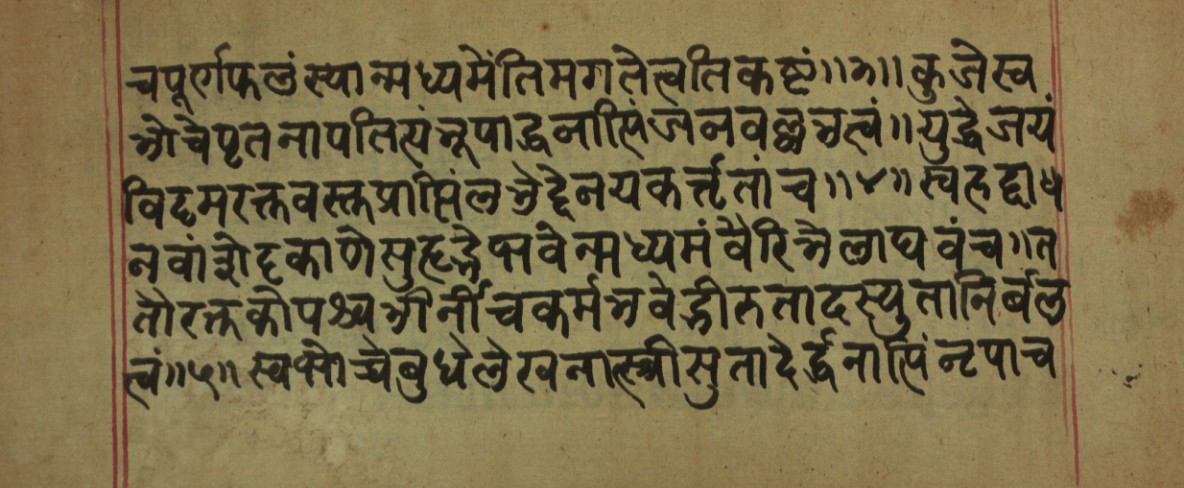 चपूर्णफलं स्यान्मध्यमेंतिमगतेत्वतिकष्टं॥३॥कुजेस्व
भोचेपृतनापतित्यंनूपाद्धनाप्तिंजनवल्लभत्वं॥युद्धेजयं
विद्रुमरक्तवस्त्रप्राप्तिंलभेद्देनयकर्त्तृतांच॥४॥स्वहद्दा
नवांशेदृकाणेसुहृद्भेभवेन्मध्यमंवैरिभेलाघवंच॥त
तोरक्तकोपश्चभीर्नीचकर्मभवेद्भीरुतादस्युतानिर्बल
त्वं॥५॥स्वभोच्चेबुधेलेखनात्स्त्रीसुतादेर्द्धनाप्तिंनृपाच